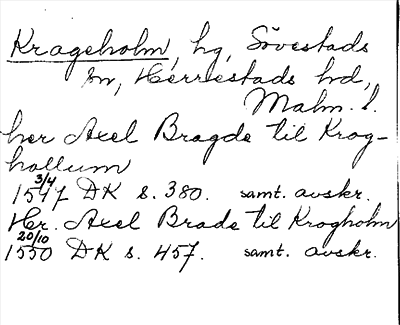 Krageholm, hg, Sövestads
sn, Herrestads hd,
Malm. l.
her Axel Bragde til Krog-
hollum
3/4
1547 DK s. 380. samt. avskr.
Her. Axel Brade til Krogholm
20/10
1550 DK s. 457. samt. avskr.